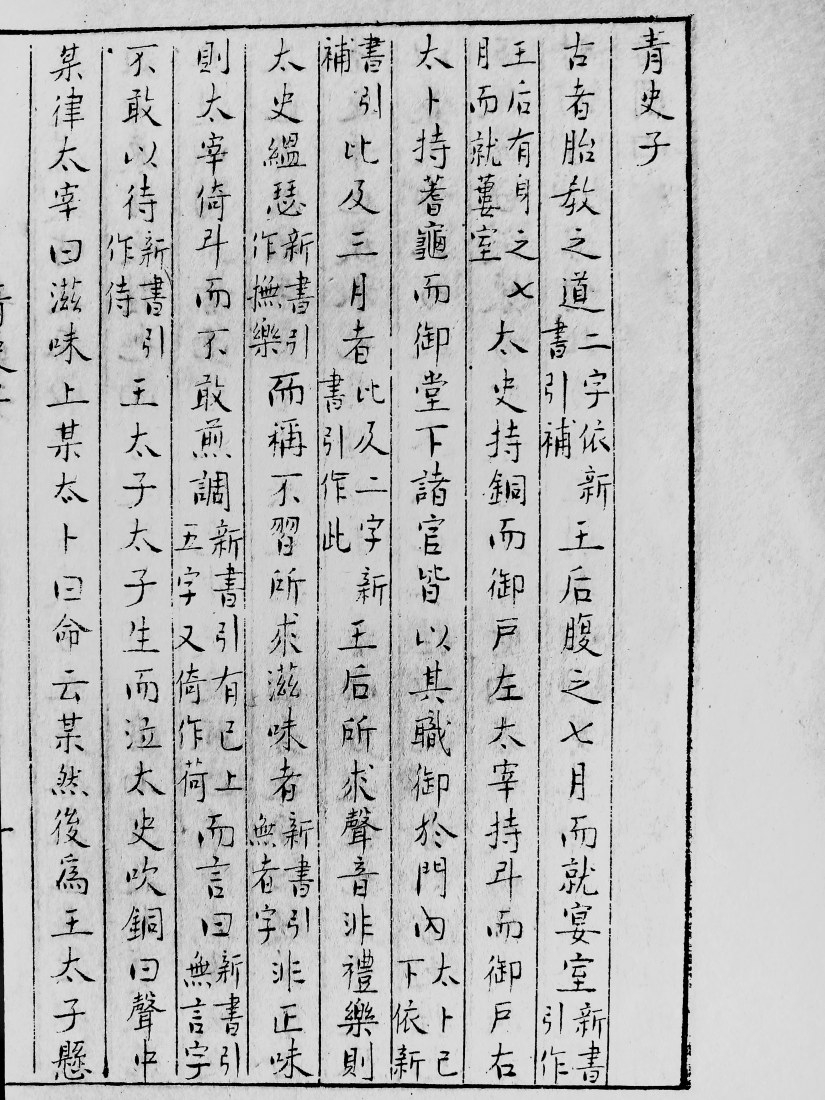 青史子
古者胎教之道二字依新書引補王后腹之七月而就宴室新書引作
王后有身之七月而就蔞室太史持銅而御戶左太宰持斗而御戶右
太卜持蓍龜而御堂下諸官皆以其職御於門內太卜已下依新
書引補比及三月者比及二字新書引作此王后所求聲音非禮樂則
太史縕瑟新書引作撫樂而稱不習所求滋味者新書引無者字非正味
則太宰倚斗而不敢煎調新書引有已上五字又倚作荷而言曰新書引無言字
不敢以待新書引作侍王太子太子生而泣太史吹銅曰聲中
某律太宰曰滋味上某太卜曰命云某然後爲王太子懸